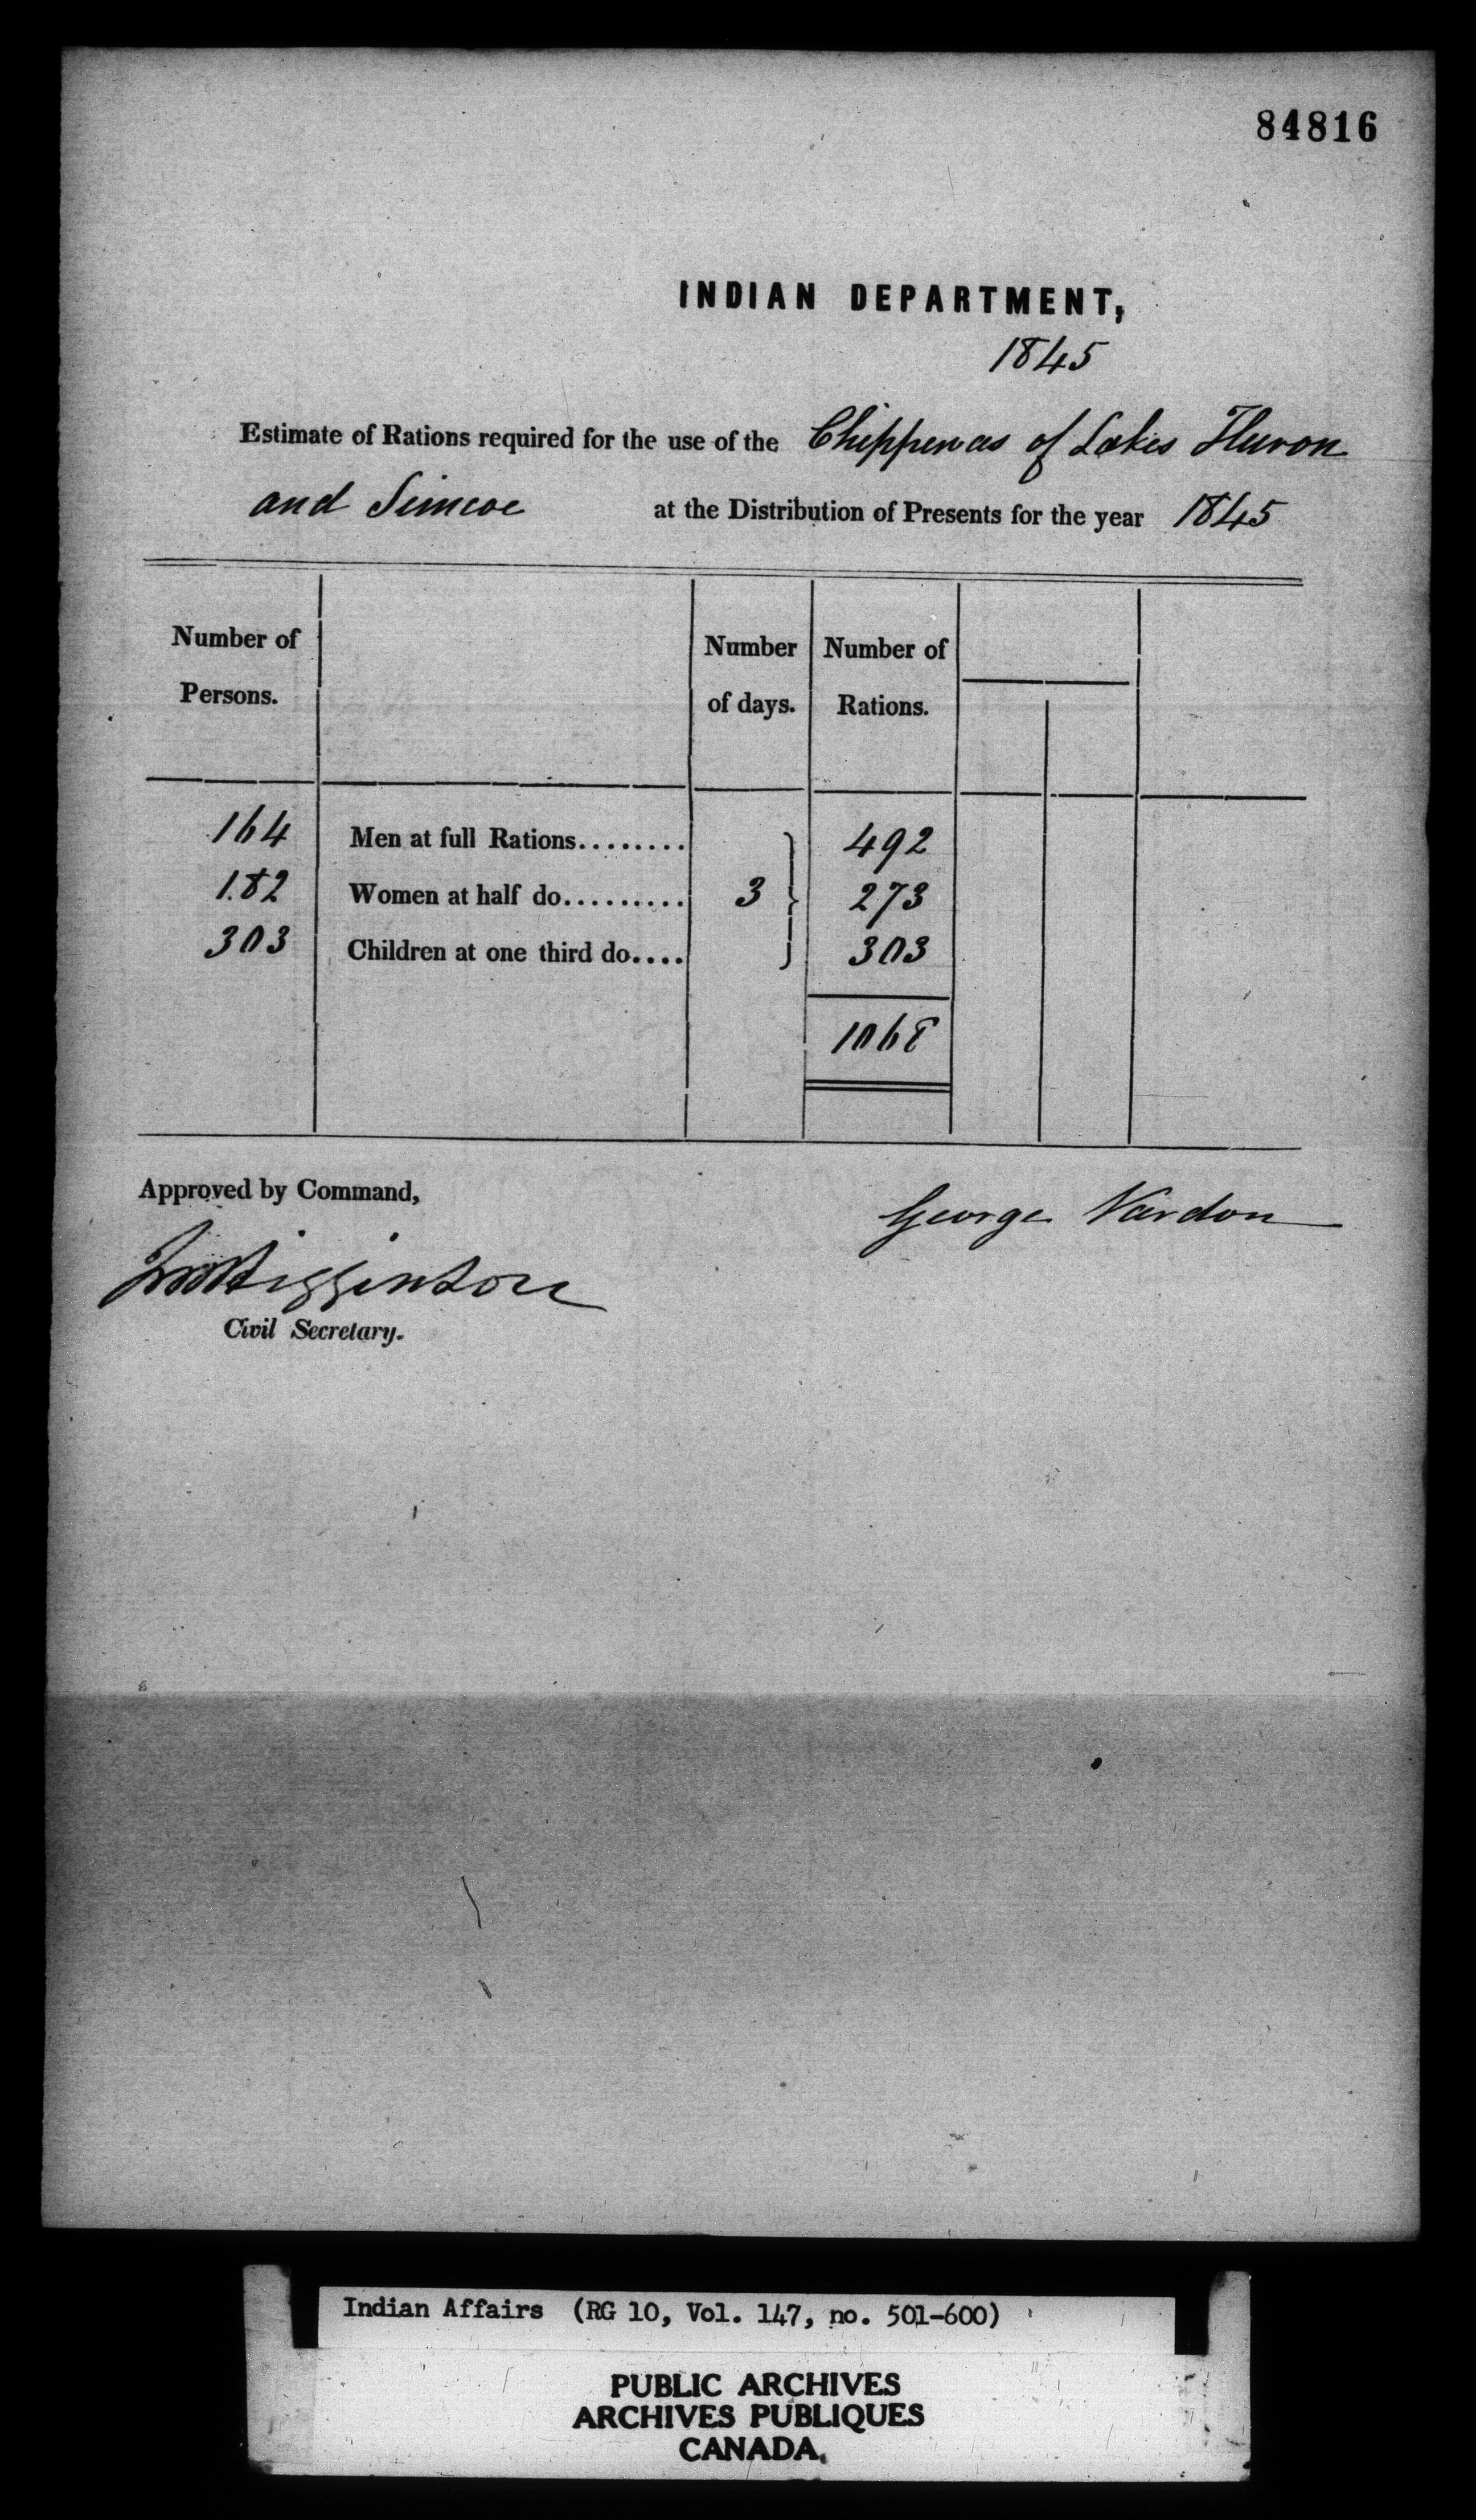 84816
INDIAN DEPARTMENT,
1845
Estimate of Rations required for the use of the Chippewas of Lakes Huron
and Simcoe at the Distribution of Presents for the year 1845
Number of Persons. Number of days. Number of Rations.
164 Men at full Rations........ 492
182 Women at half do......... 3 273
303 Children at one third do.... 303
1068
Approved by Command,
George Vardon
Higginson
Civil Secretary.
Indian Affairs (RG 10, Vol. 147, no. 501-600)
PUBLIC ARCHIVES
ARCHIVES PUBLIQUES
CANADA